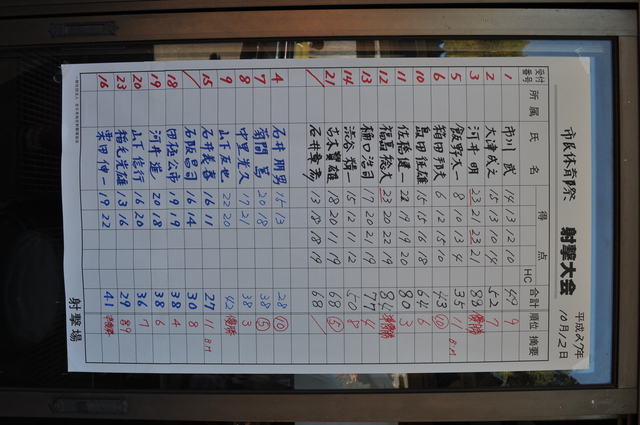 市民体育祭 射撃大会 平成27年10月12日
受付番号 所属 氏名 得点 HC 合計 順位 摘要
1 市川 武 14 13 12 10 49 9
2 大津成之 15 13 10 14 52 7
3 河井 明 23 21 23 21 88 優勝
5 飯野久一 8 10 13 4 35 11 B.M
6 稲田邦夫 6 12 15 10 43 ⑩
10 島田佳雄 15 15 16 18 64 6
11 佐藤健一 22 19 19 20 80 3
12 福島裕文 23 20 22 19 84 準優勝
13 樋口浩司 17 20 21 19 77 4
14 渋谷靖一 15 12 11 12 50 8
21 吉本寛雄 18 20 11 19 68 ⑤
石井章斎 13 18 18 19 68
4 石井朋男 15 13 28 ⑩
7 菊間 20 18 38 ⑤
8 中里光久 17 21 38 3
9 山下友也 22 20 42 優勝
15 石井義春 16 11 27 11 B.M
石阪昌司 16 14 30 8
18 田極公市 19 19 38 4
19 河井 進 20 18 38 6
20 山下信行 16 20 36 7
23 稲元光雄 13 16 29 8
16 栗田伸一 19 22 41 準優勝
射撃場